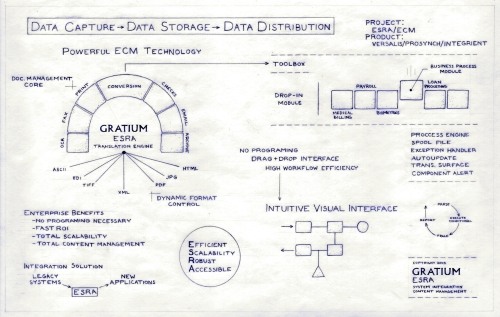 DATA CAPTURE → DATA STORAGE → DATA DISTRIBUTION
PROJECT:
ESRA/ECM
PRODUCT:
VERSALIS/PROSYNCH/INTEGRIENT
POWERFUL ECM TECHNOLOGY
DOC. MANAGEMENT
CORE
OCR
FAX
PRINT
CONVERSION
CHECKS
EMAIL
ARCHIVE
GRATIUM
ESRA
TRANSLATION ENGINE
ASCII
EDI
TIFF
XML
PDF
JPG
HTML
DYNAMIC FORMAT
CONTROL
TOOLBOX
BUSINESS PROCESS
MODULE
DROP-IN
MODULE
PAYROLL
LOAN
PROCESSING
MEDICAL
BILLING
BIOMETRICS
NO PROGRAMING
DRAG + DROP INTERFACE
HIGH WORKFLOW EFFICIENCY
PROCCESS ENGINE
SPOOL FILE
EXCEPTION HANDLER
AUTOUPDATE
TRANS. SURFACE
COMPONENT ALERT
ENTERPRISE BENEFITS
- NO PROGRAMING NECESSARY
- FAST ROI
- TOTAL SCALABILITY
- TOTAL CONTENT MANAGEMENT
INTEGRATION SOLUTION
LEGACY
SYSTEMS
ESRA
NEW
APPLICATIONS
EFFICIENT
SCALABILITY
ROBUST
ACCESSIBLE
INTUITIVE VISUAL INTERFACE
PARSE
REPORT
EXECUTE
FUNCTIONAL
GRATIUM
ESRA
SYSTEM INTEGRATION
CONTENT MANAGEMENT